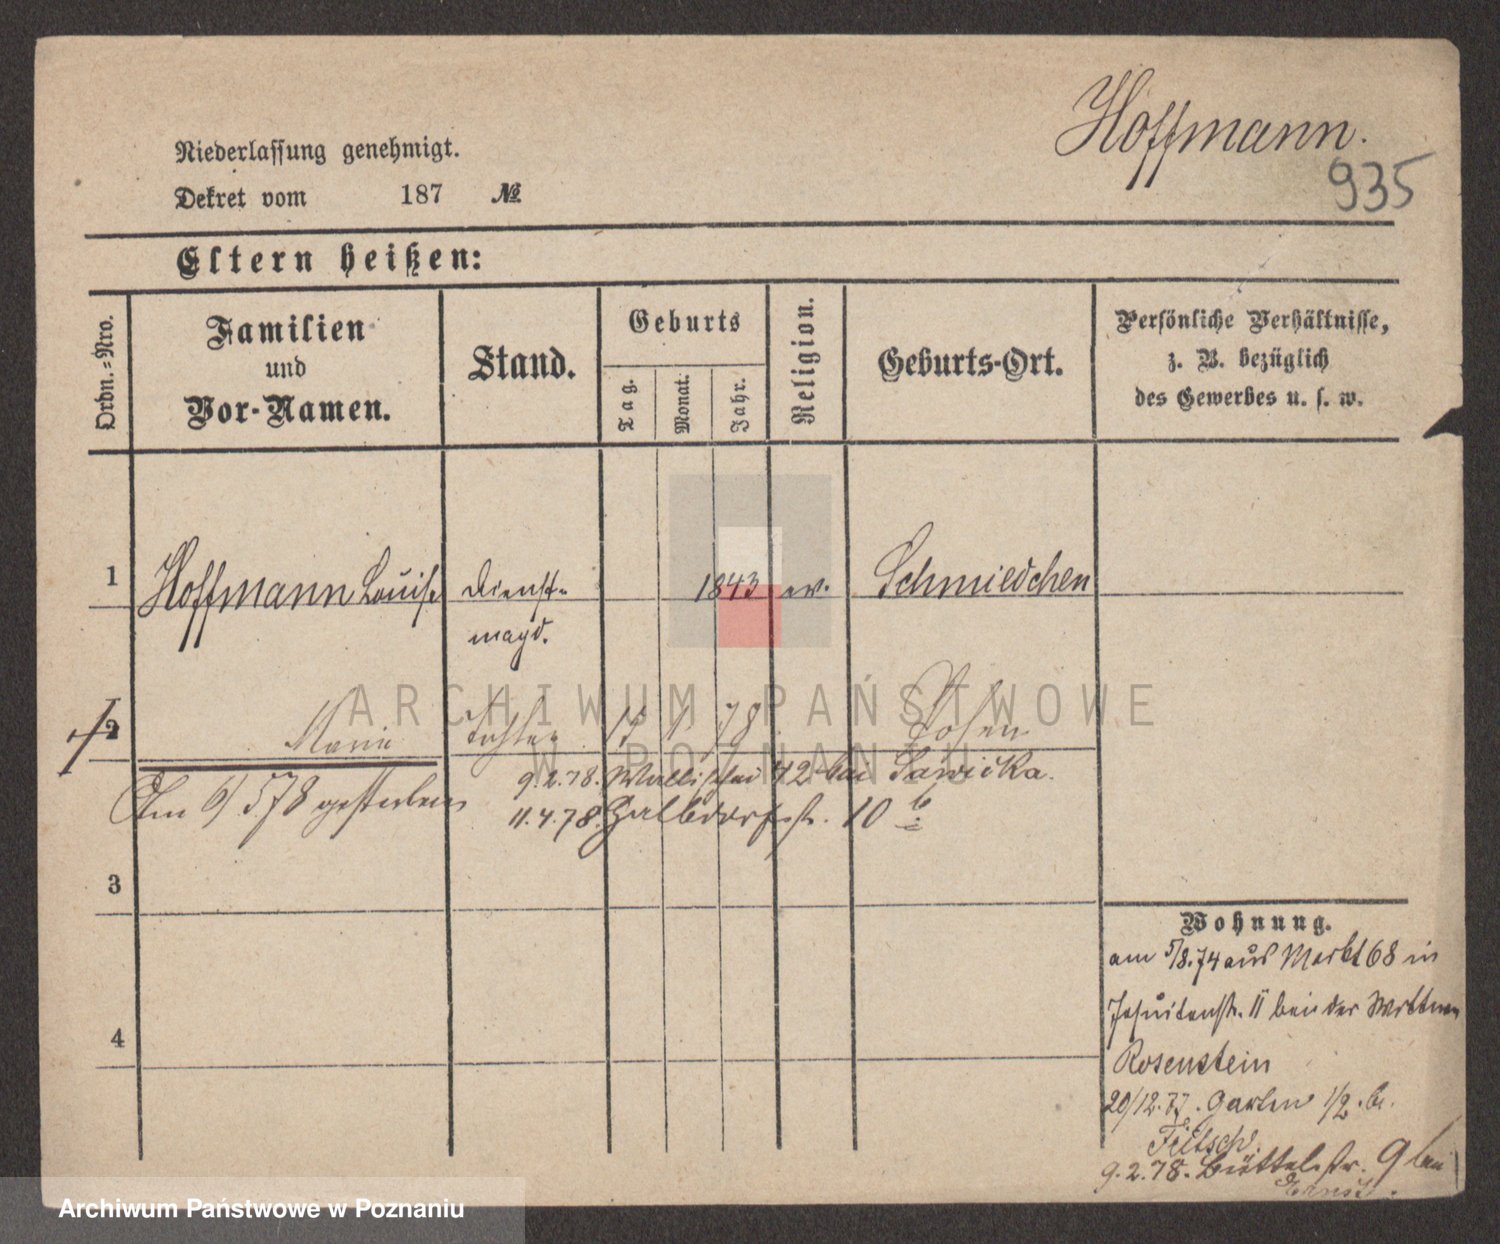 Hoffmann.
935
Niederlassung genehmigt.
Dekret vom 187 №
Eltern heißen:
Ordn.=Nro.
Familien
und
Vor-Namen.
Stand.
Geburts
Tag.
Monat.
Jahr.
Religion.
Geburts-Ort.
Persönliche Verhältnisse,
z. B. bezüglich
des Gewerbes u. s. w.
1 Hoffmann Louise Dienst= 1843 ev. Schmiedchen
magd.
2 Marie Tochter 1 78 Posen
9.2.78. Wallischei 42 bei Sawicka.
Am 6/5 78 gestorben
11.4.78. Halbdorfstr. 10 b.
3
4
Wohnung.
am 5/8.74 aus Markt 68 in
Jesuitenstr. 11 bei der Wittwe
Rosenstein
20/12.77. Garten 1/2. b.
9.2.78. Büttelstr. 9 bei
Ernst.
ARCHIWUM PAŃSTWOWE
W POZNANIU
Archiwum Państwowe w Poznaniu